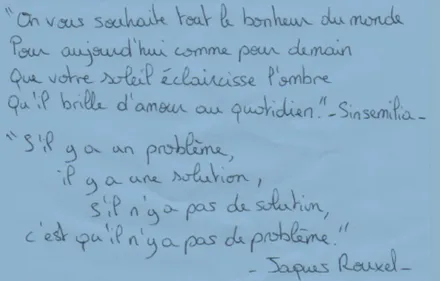 "On vous souhaite tout le bonheur du monde
Pour aujourd'hui comme pour demain
Que votre soleil éclaircisse l'ombre
Qu'il brille d'amour au quotidien." - Sinsemilia -
"S'il y a un problème,
il y a une solution,
S'il n'y a pas de solution,
c'est qu'il n'y a pas de problème."
- Jaques Rouxel -